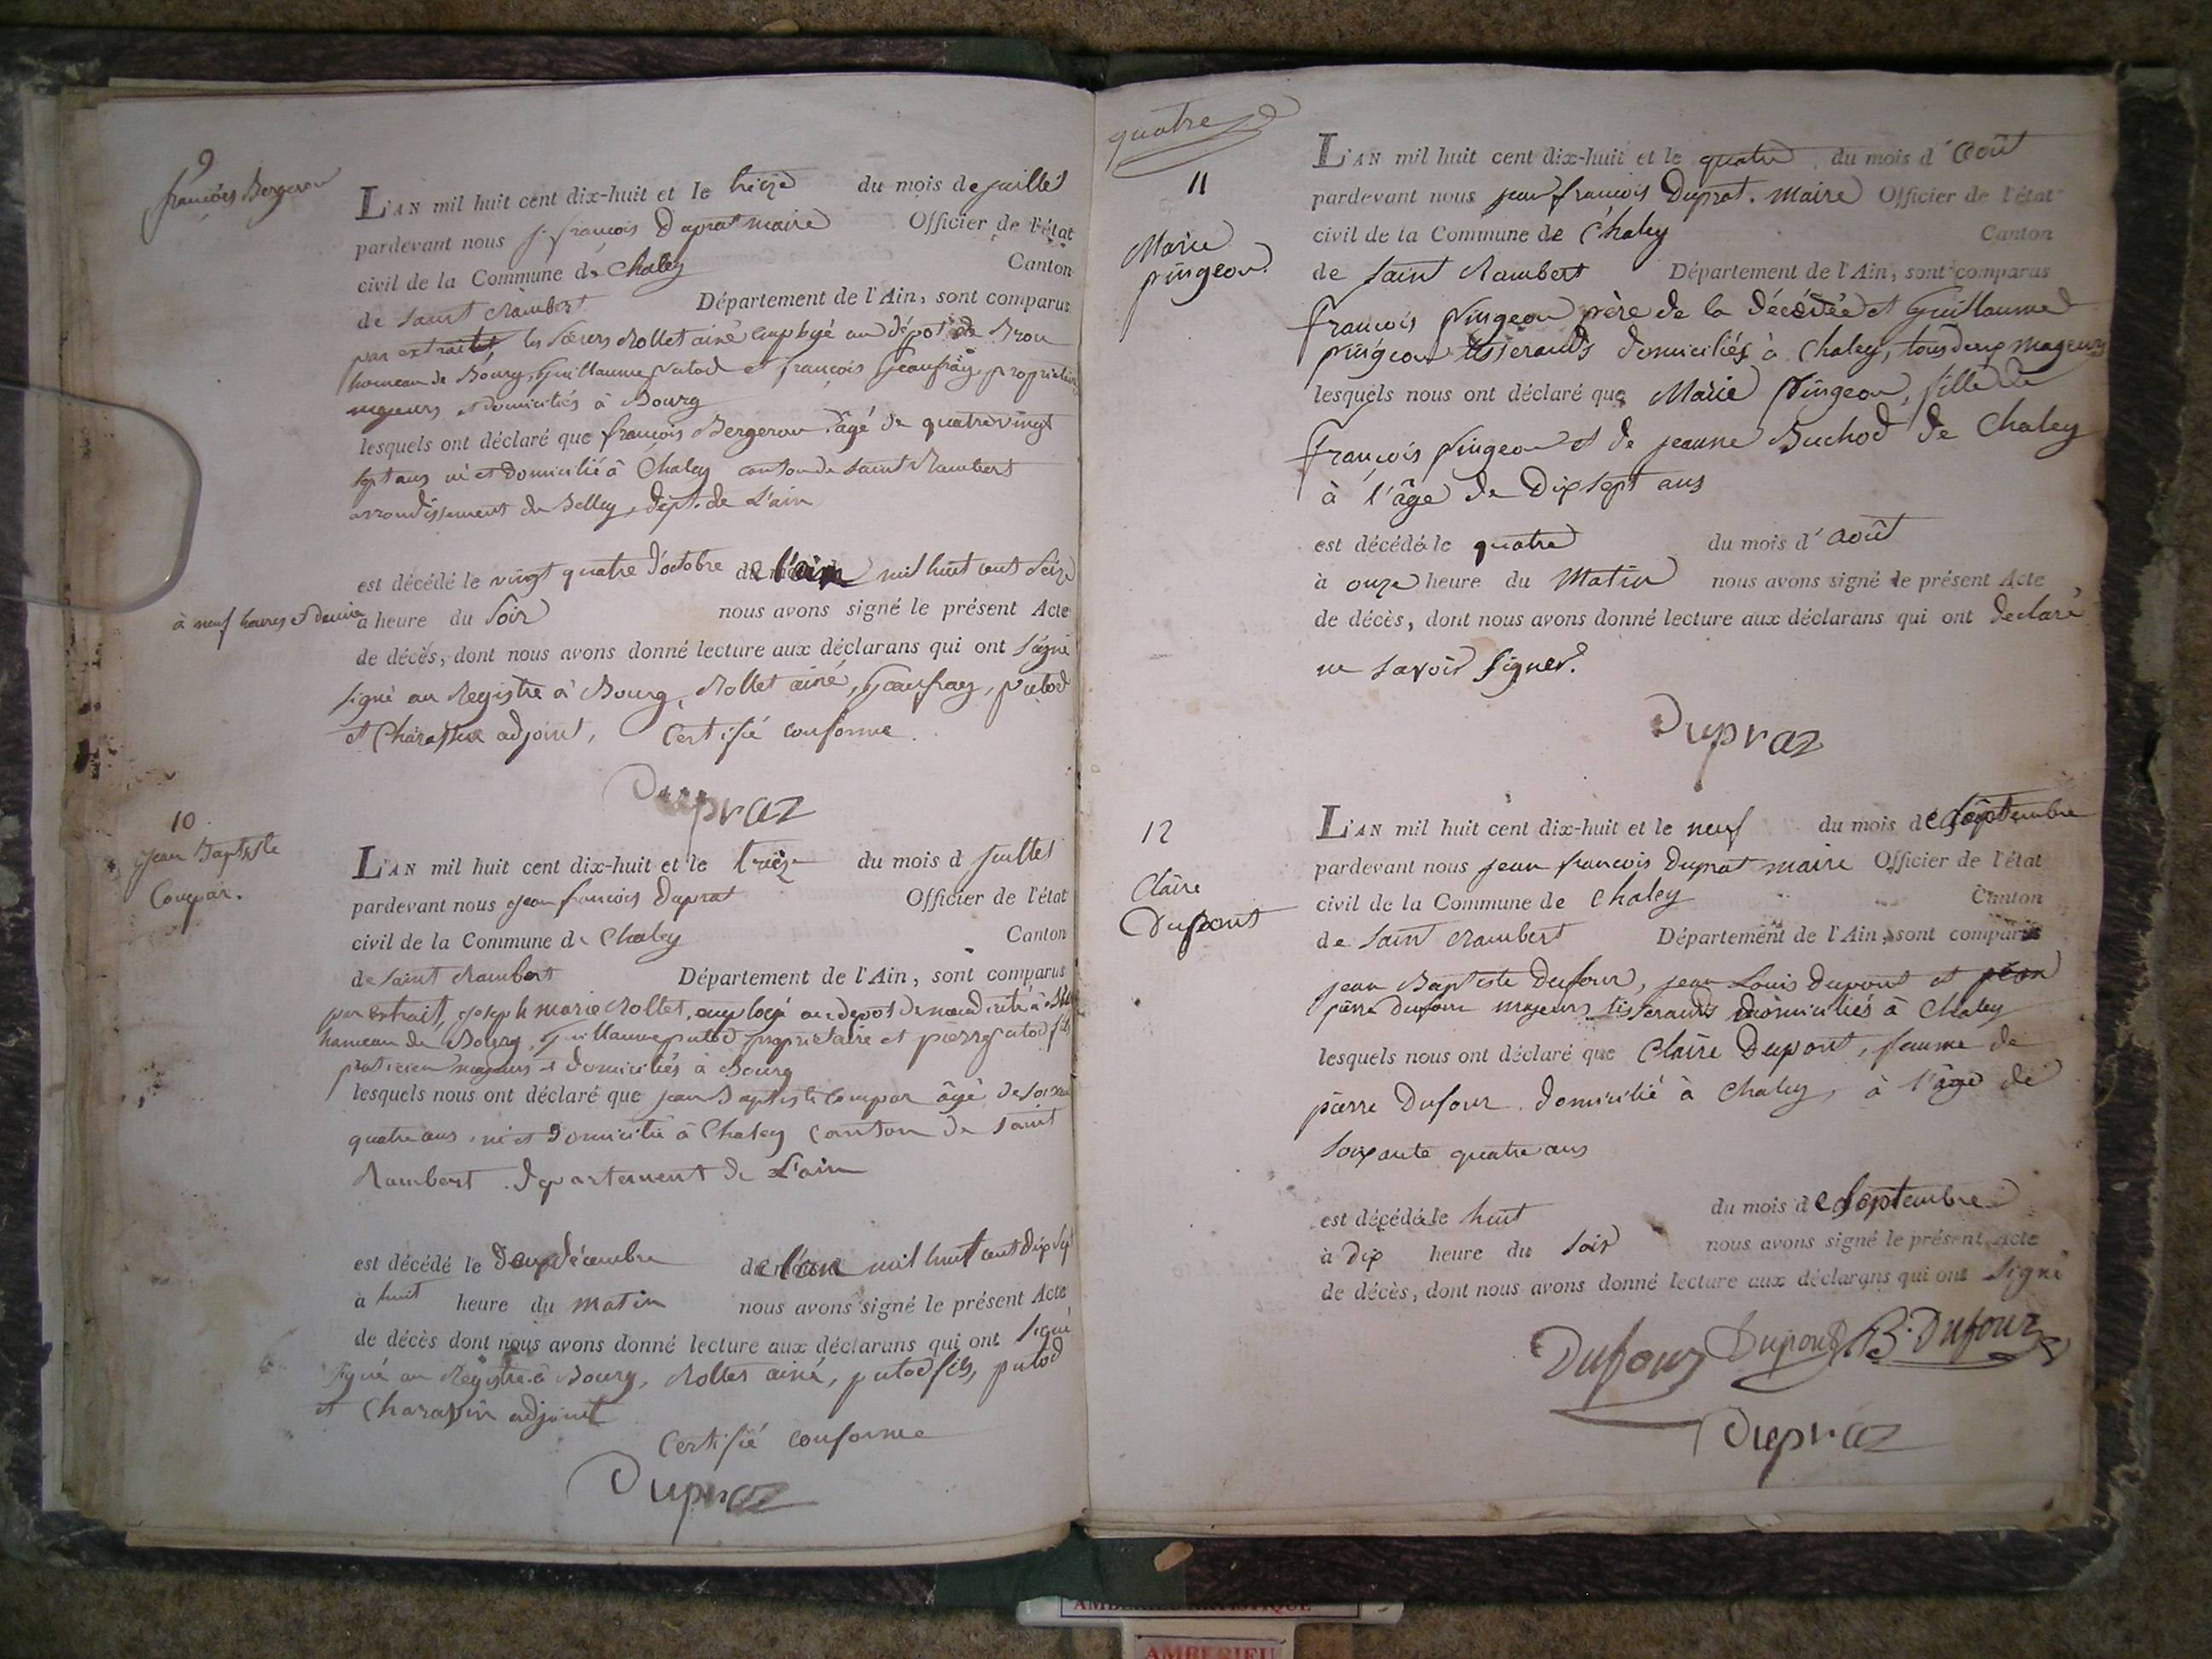 9
françois Bergeron
L'AN mil huit cent dix-huit et le treize du mois de juillet
pardevant nous j. françois Duprat maire Officier de l'état
civil de la Commune de Chaley Canton
de Saint Rambert Département de l'Ain, sont comparus
par extrait, les Rollet ainé employé au dépôt de Brou
hameau de Bourg, Guillaume putod et françois Geaufray, propriétaire
majeurs et domiciliés à Bourg
lesquels ont déclaré que françois Bergeron âgé de quatrevingt
sept ans né et domicilié à Chaley canton de Saint Rambert
arrondissement de Belley, dépt. de L'ain
est décédé le vingt quatre d'octobre de l'an mil huit cent seize
à neuf heures et demie à heure du Soir nous avons signé le présent Acte
de décès, dont nous avons donné lecture aux déclarans qui ont signé
signé au Registre à Bourg, Rollet ainé, Geaufray, putod
et adjoint, Certifié conforme
Dupraz
10
Jean Baptiste
Compar.
L'AN mil huit cent dix-huit et le treize du mois d juillet
pardevant nous jean françois Duprat Officier de l'état
civil de la Commune de Chaley Canton
de Saint Rambert Département de l'Ain, sont comparus
par extrait, joseph marie Rollet, employé au depot de mendicité à
hameau de Bourg, Guillaume putod propriétaire et pierre putod fils
praticien majeurs et domiciliés à Bourg
lesquels nous ont déclaré que jean Baptiste Compar âgé de soixante
quatre ans, né et domicilié à Chaley canton de Saint
Rambert département de L'ain
est décédé le deux décembre de l'an mil huit cent dix sept
à huit heure du matin nous avons signé le présent Acte
de décès dont nous avons donné lecture aux déclarans qui ont signé
signé au Registre à Bourg, Rollet ainé, putod fils, putod
et Charassin adjoint
Certifié conforme
Dupraz
quatre
11
Marie
pingeon.
L'AN mil huit cent dix-huit et le quatre du mois d'Août
pardevant nous jean françois Duprat. Maire Officier de l'état
civil de la Commune de Chaley Canton
de Saint Rambert Département de l'Ain, sont comparus
françois pingeon père de la décédée et Guillaume
pingeon tisserands domiciliés à Chaley, tous deux mageurs
lesquels nous ont déclaré que Marie pingeon, fille de
françois pingeon et de jeanne Buchod de Chaley
à l'âge de Dix sept ans
est décédé le quatre du mois d'août
à onze heure du Matin nous avons signé le présent Acte
de décès, dont nous avons donné lecture aux déclarans qui ont déclaré
ne savoir signer.
Dupraz
12
Claire
Dupont
L'AN mil huit cent dix-huit et le neuf du mois de Septembre
pardevant nous jean françois Duprat maire Officier de l'état
civil de la Commune de Chaley Canton
de Saint Rambert Département de l'Ain, sont comparus
jean Baptiste Dufour, jean Louis dupont et jean
pierre Dufour majeurs tisserands domiciliés à Chaley
lesquels nous ont déclaré que Claire Dupont, femme de
pierre Dufour. domicilié à Chaley, à l'âge de
soixante quatre ans
est décédé le huit du mois de Septembre
à dix heure du Soir nous avons signé le présent Acte
de décès, dont nous avons donné lecture aux déclarans qui ont signé
Dufour Dupont B. Dufour
Dupraz
AMBERIEU